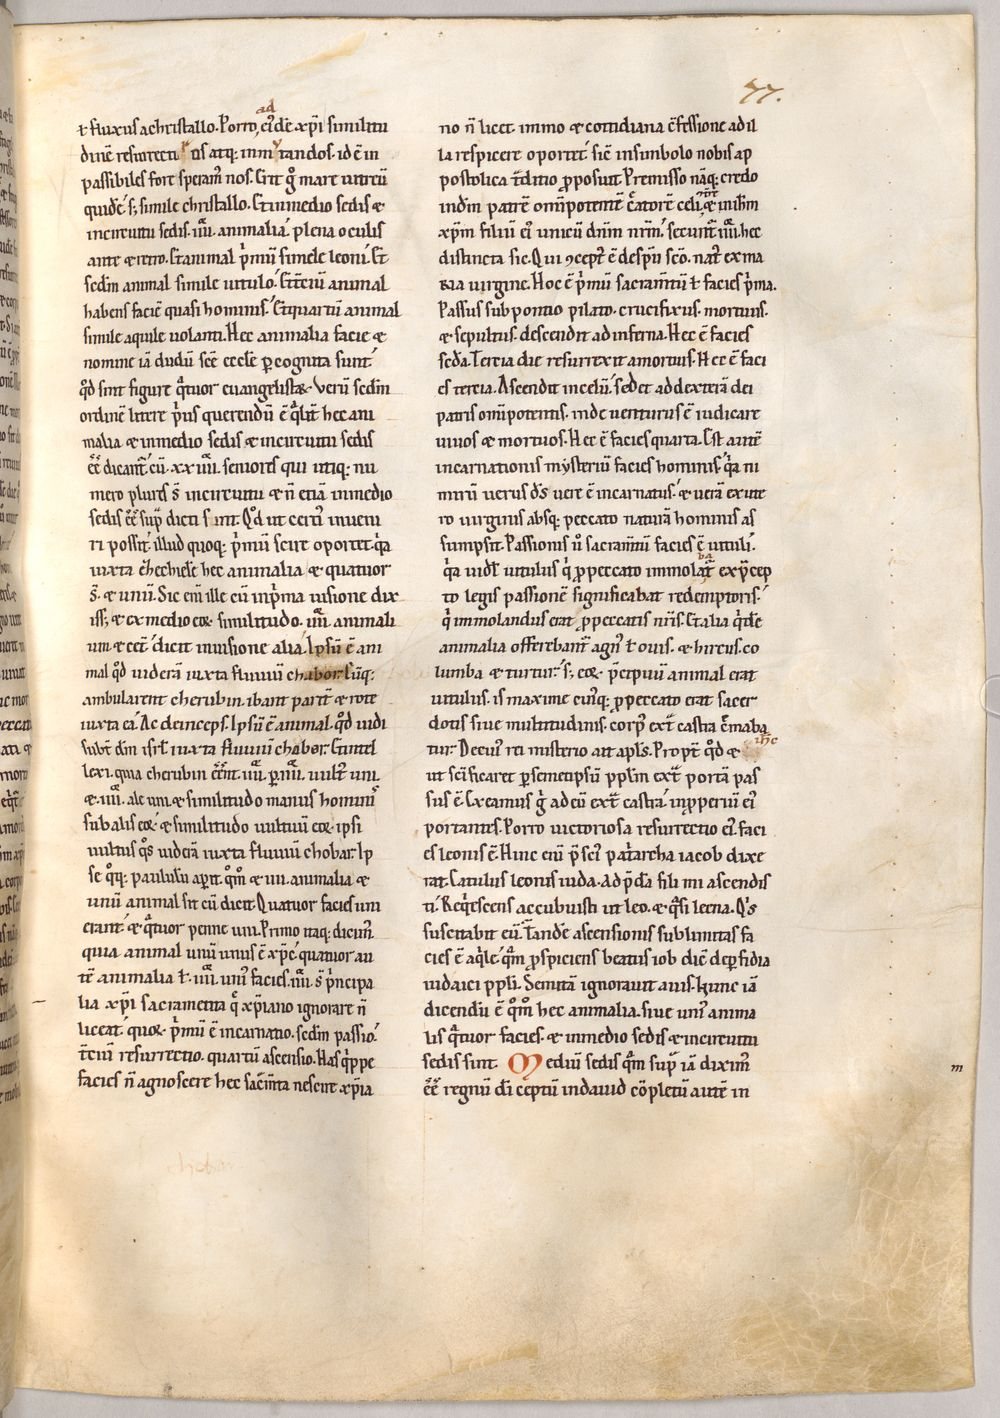 77.
ł fluxus achristallo. Porro, ad eiꝰdē xp̄i similitu
dinē resurrectu ros atq; inmᵘtandos. id ē in
passibiles fore speramꝰ nos. Erit g̊ mare uitreū
quidē s; simile christallo. Et inmedio sedis ⁊
incircuitu sedis .iiii. animalia plena oculis
ante ⁊ retro. Et animal p̄mū simele leoni. Et
sedm animal simile uitulo. Et t̄ciū animal
habens faciē quasi hominis. Et quartū animal
simile aquile uolanti. Hec animalia facie ⁊
nomine iā dudū sc̄e eccl̄e p̱ cognita sunt.
qd̄ sint figure q̄tuor euangelistaꝝ. Verū sedm
ordinē litere p̄us querendū ē q̄lit̄ hec ani
malia ⁊ inmedio sedis ⁊ incircuitu sedis
ēē dicant᷑. cū .xxiiii. seniores qui utiq; nu
mero plures s̄ incircuitu ⁊ n̄ etiā inmedio
sedis ēē sup̄ dicti sint. Qd̄ ut certiꝰ inueni
ri possit. illud quoq; p̄mū scire oportet. q̄a
iuxta ezechiele hec animalia ⁊ quatuor
s̄. ⁊ unū. Sic eni ille cū inp̄ma uisione dix
iss; ⁊ ex medio eoꝝ similitudo .iiii. animali
um ⁊ cet̄. dicit inuisione alia. Ipsū ē ani
mal qd̄ uiderā iuxta fluuiū chabor. Cūq;
ambularent cherubin. ibant parit̄ ⁊ rote
iuxta ea. Ac deinceps. Ipsū ē animal. qd̄ uidi
subt̄ dm̄ isrl̄ iuxta fluuiū chabor. Et intel
lexi. quia cherubin ēēnt .iiii. p̱ .iiii. uultꝰ uni
⁊ .iiii. ale uni. ⁊ similitudo manus hominiˢ
sub alis eoꝝ. ⁊ similitudo uultuū eoꝝ. ipsi
uultus q̊s uiderā iuxta fluuiū chobar. Ip
se q̊q; paululū aperit. qm̊ ⁊ iiii. animalia ⁊
unū animal sit cū dicit. Quatuor facies uni
erant. ⁊ q̄tuor penne uni. Primo itaq; dicimꝰ
quia animal unū unus ē xp̄c. quatuor au
tē animalia ł .iiii. uniꝰ facies .iiii. s̄ p̄ncipa
lia xp̄i sacramenta q̄ xp̄iano ignorare n̄
liceat. quoꝝ p̄mū ē incarnatio. sedm passio.
t̄ciū resurrectio. quartū ascensio. Has q̄ppe
facies n̄ agnoscere hec sac̄mta nescire xp̄ia
no n̄ licet. immo ⁊ cottidiana ɔ̄fessione ad il
la respicere oportet. sic̄ insimbolo nobis ap
postolica t̄ditio p̱posuit. Premisso nāq; credo
indm̄ patrē omp̄otentē c̄atorē celi ⁊ tr̄e ⁊ inihm̄
xp̄m filiū eiꝰ unicū dnm̄ nrm̄. secunt᷑ .iiii. hec
distincta sic. Qui ɔcept̄ ē despū scō. nat̄ ex ma
ria uirgine. Hoc ē p̄mū sacram̄tū ł facies p̄ma.
Passus sub pontio pilato. crucifixus. mortuus.
⁊ sepultus. descendit ad inferna. Hec ē facies
secda. Tercia die resurrexit amortuis. Hec ē faci
es tercia. Ascendit incelū. sedet ad dexterā dei
patris omp̄otentis. inde uenturus ē iudicare
uiuos ⁊ mortuos. Hec ē facies quarta. Est autē
incarnationis mysteriū facies hominis. q̄a ni
mirū uerus d̄s uere ē incarnatus. ⁊ uerā ex ute
ro uirginis absq; peccato naturā hominis as
sumpsit. Passionis ū sacram̄tū facies ē uituli.
q̄a uidl̄ uitulus q̄ p̱ peccato immolabat᷑ ex p̄cep
to legis passionē significabat redemptoris.
q̄ immolandus erat p̱ peccatis nr̄is. Et alia q̄dē
animalia offerebant᷑ agnꝰ ł ouis. ⁊ hircus. co
lumba ⁊ turtur. s; eoꝝ p̄cipuū animal erat
uitulus. is maxime cuiꝰq; p̱ peccato erat sacer
dotis siue multitudinis. corpꝰ ext̄ castra c̄maba
tur. De cuiꝰ rei misterio ait apls̄. Propt̄ qd̄ ⁊ ihc̄
ut sc̄ificaret p̱ semetipsū pplm̄ ext̄ portā pas
sus ē. Exeamus g̊ ad eū ext̄ castra. inp̱periū eiꝰ
portantes. Porro uictoriosa resurrectio eiꝰ faci
es leonis ē. Hinc eni p̄sciꝰ pat̄archa iacob dixe
rat. Catulus leonis iuda. Ad p̄dā fili mi ascendis
ti. Req̄escens accubuisti ut leo. ⁊ q̄si leena. Q's
suscitabit eū. Tandē ascensionis sublimitas fa
cies ē aq̄le. q̄m p̱spiciens beatus iob dic̄ dep̱fidia
iudaici ppli. Semitā ignorauit auis. Hunc iā
dicendū ē qm̊ hec animalia. siue uniꝰ anima
lis q̄tuor facies. ⁊ inmedio sedis ⁊ incircuitu
sedis sint. Mediū sedis q̄m sup̄ iā diximꝰ
ēē regnū di. ceptū indauid cōpletū autē in
m
chobar